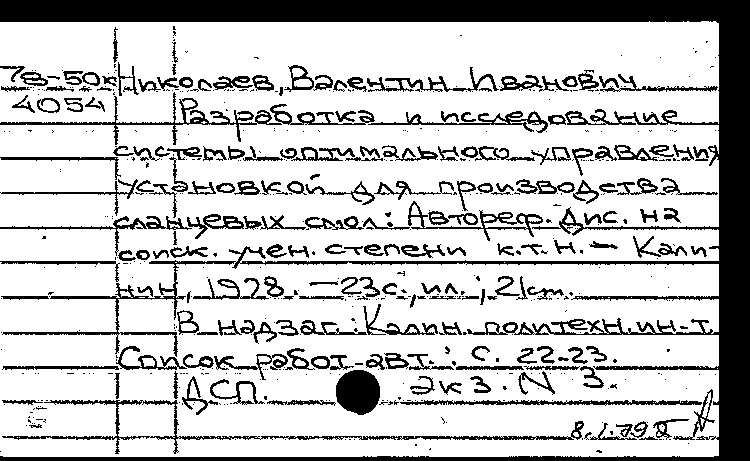 78-50к Николаев, Валентин Иванович
4054 Разработка и исследование
системы оптимального управления
установкой для производства
сланцевых смол: Автореф. Дис. на
соиск. учен. степени к.т.н. — Кали-
нин, 1978. — 23с., ил.; 21cm.
В надзаг.: Калин. политехн. ин-т.
Список работ авт.: с. 22-23.
ДСП. Экз. N 3.
8.1.79